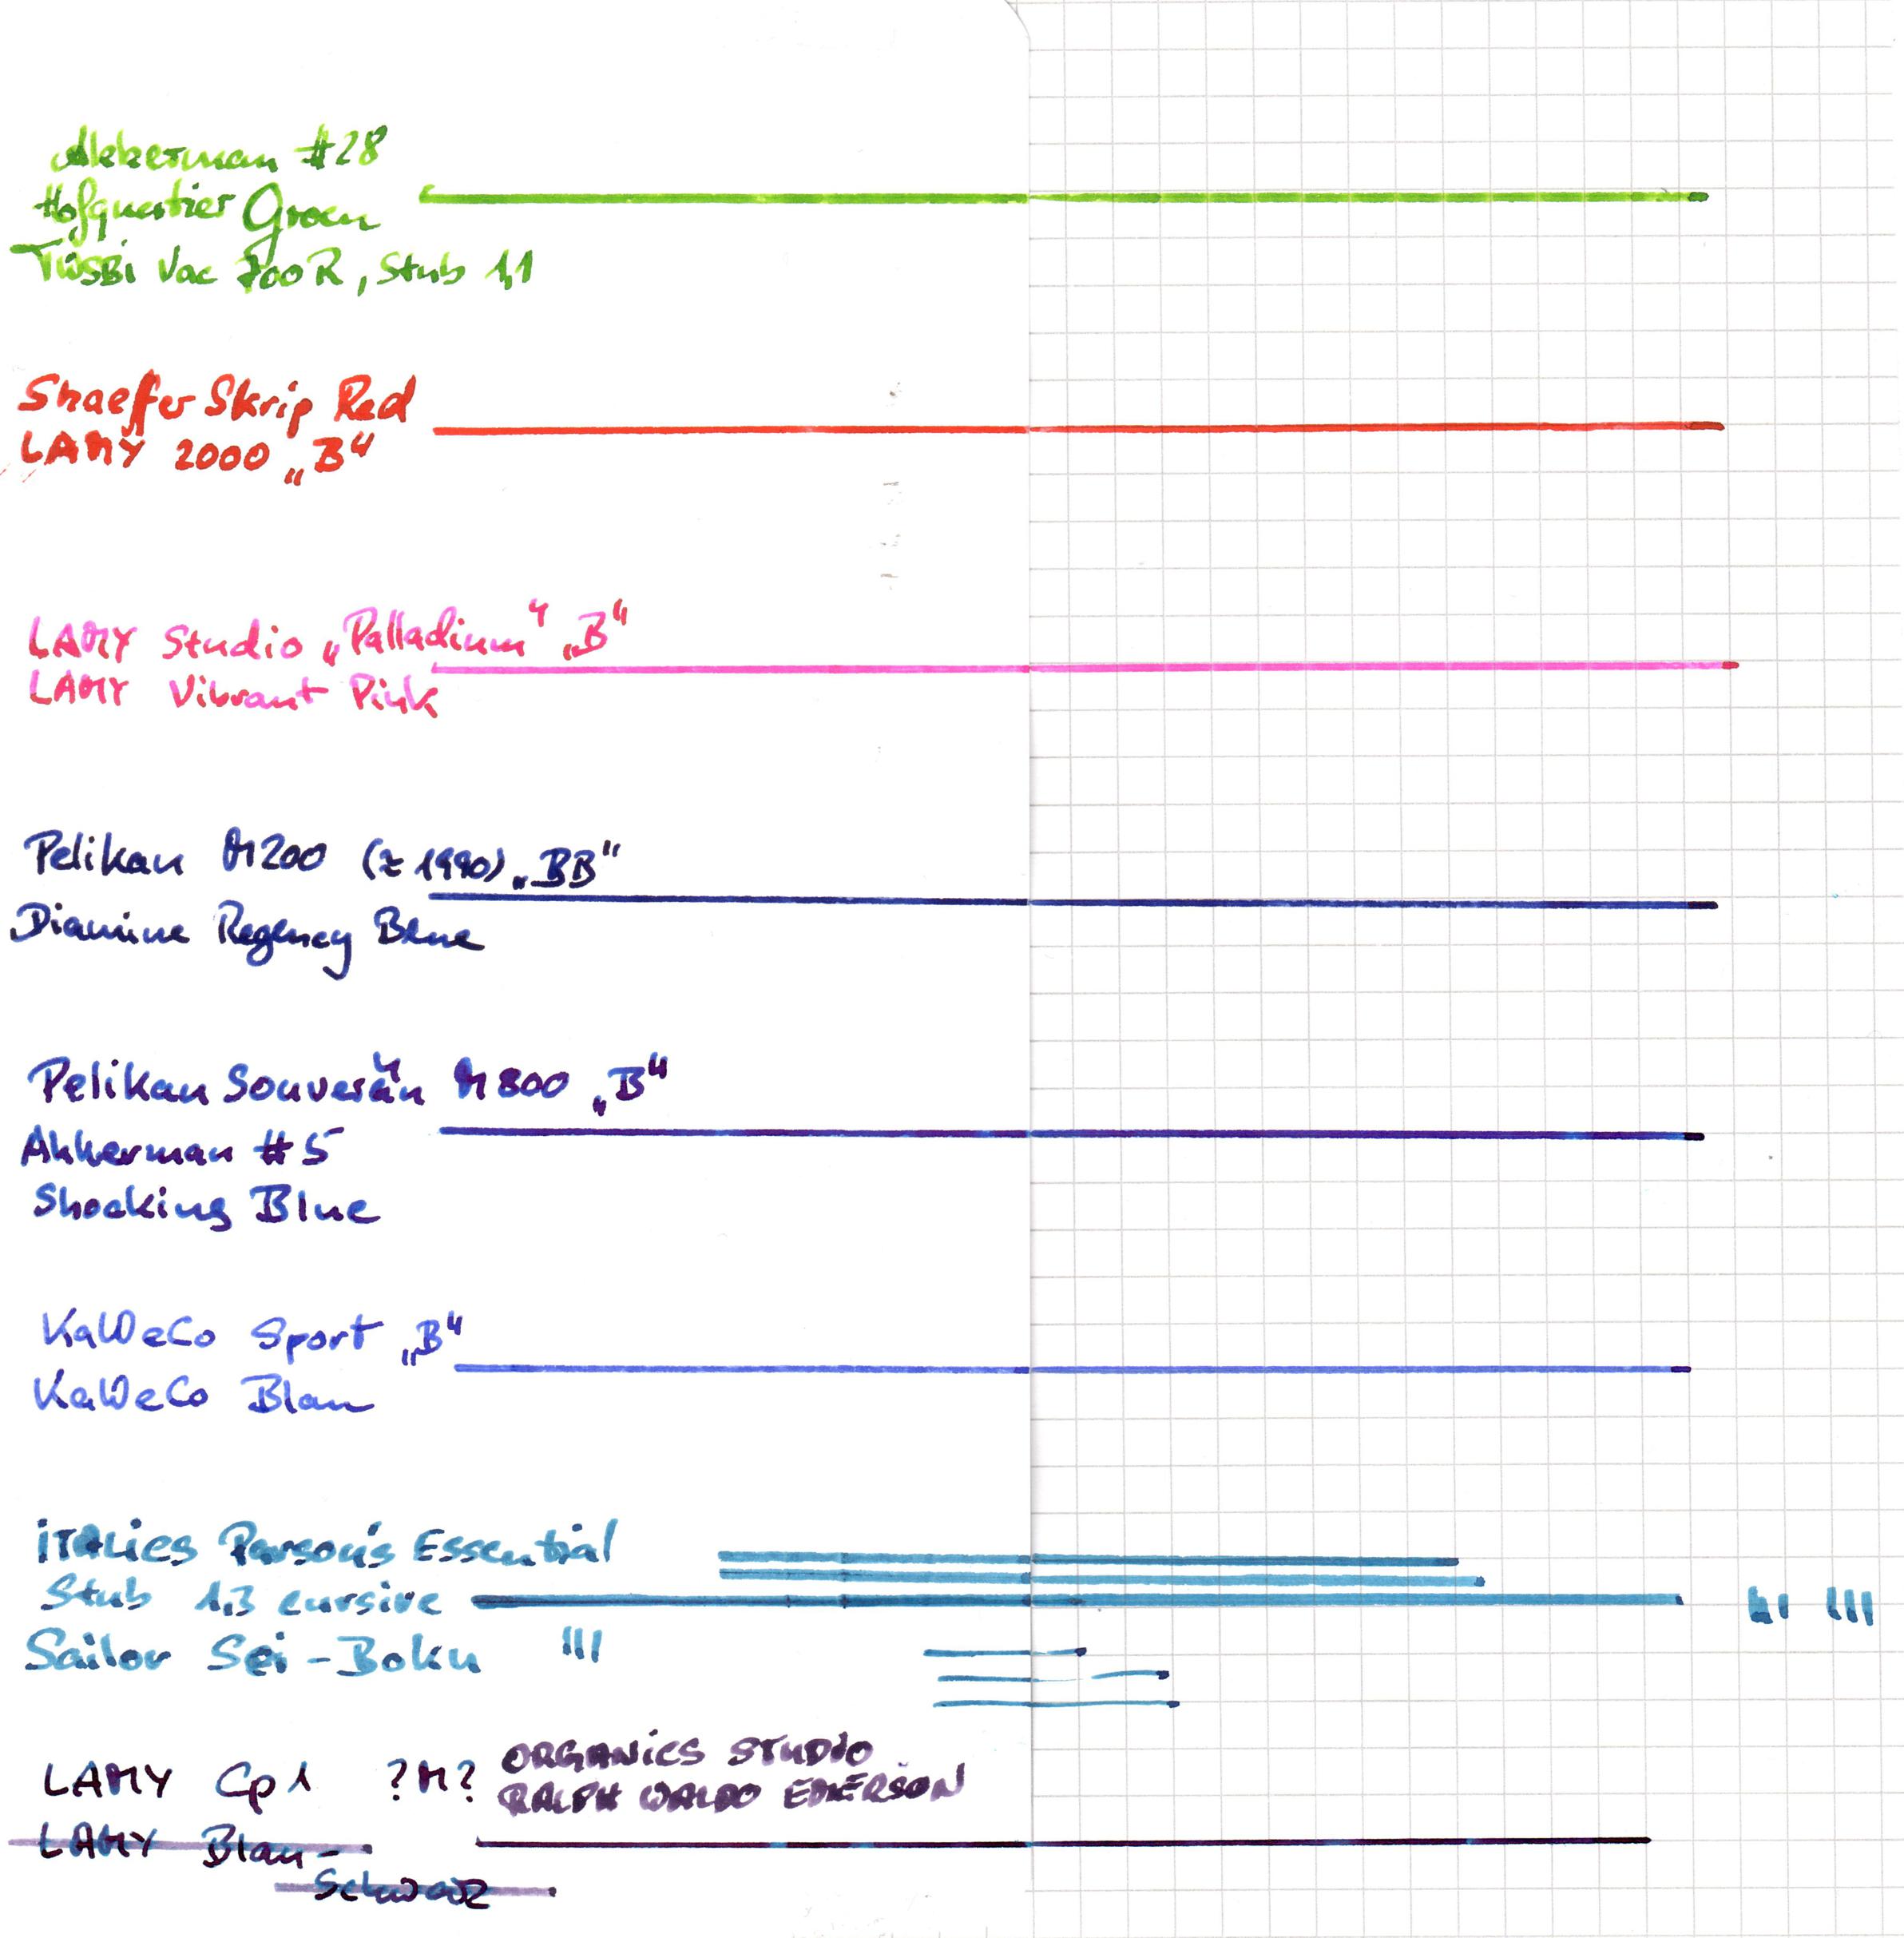 Akkerman #28
Hofquartier Groen
TWSBi Vac 700R, Stub 1,1
Shaeffer Skrip Red
LAMY 2000 „B“
LAMY Studio „Palladium“ „B“
LAMY Vibrant Pink
Pelikan M200 (≈ 1990) „BB“
Diamine Regency Blue
Pelikan Souverän M800 „B“
Akkerman #5
Shocking Blue
KaWeCo Sport „B“
KaWeCo Blau
iTALiCS Parson's Essential
Stub 1.3 cursive
Sailor Sei-Boku
LAMY Cp1 ?M?
ORGANiCS STUDiO
RALPH WALDO EMERSON
LAMY Blau-
Schwarz